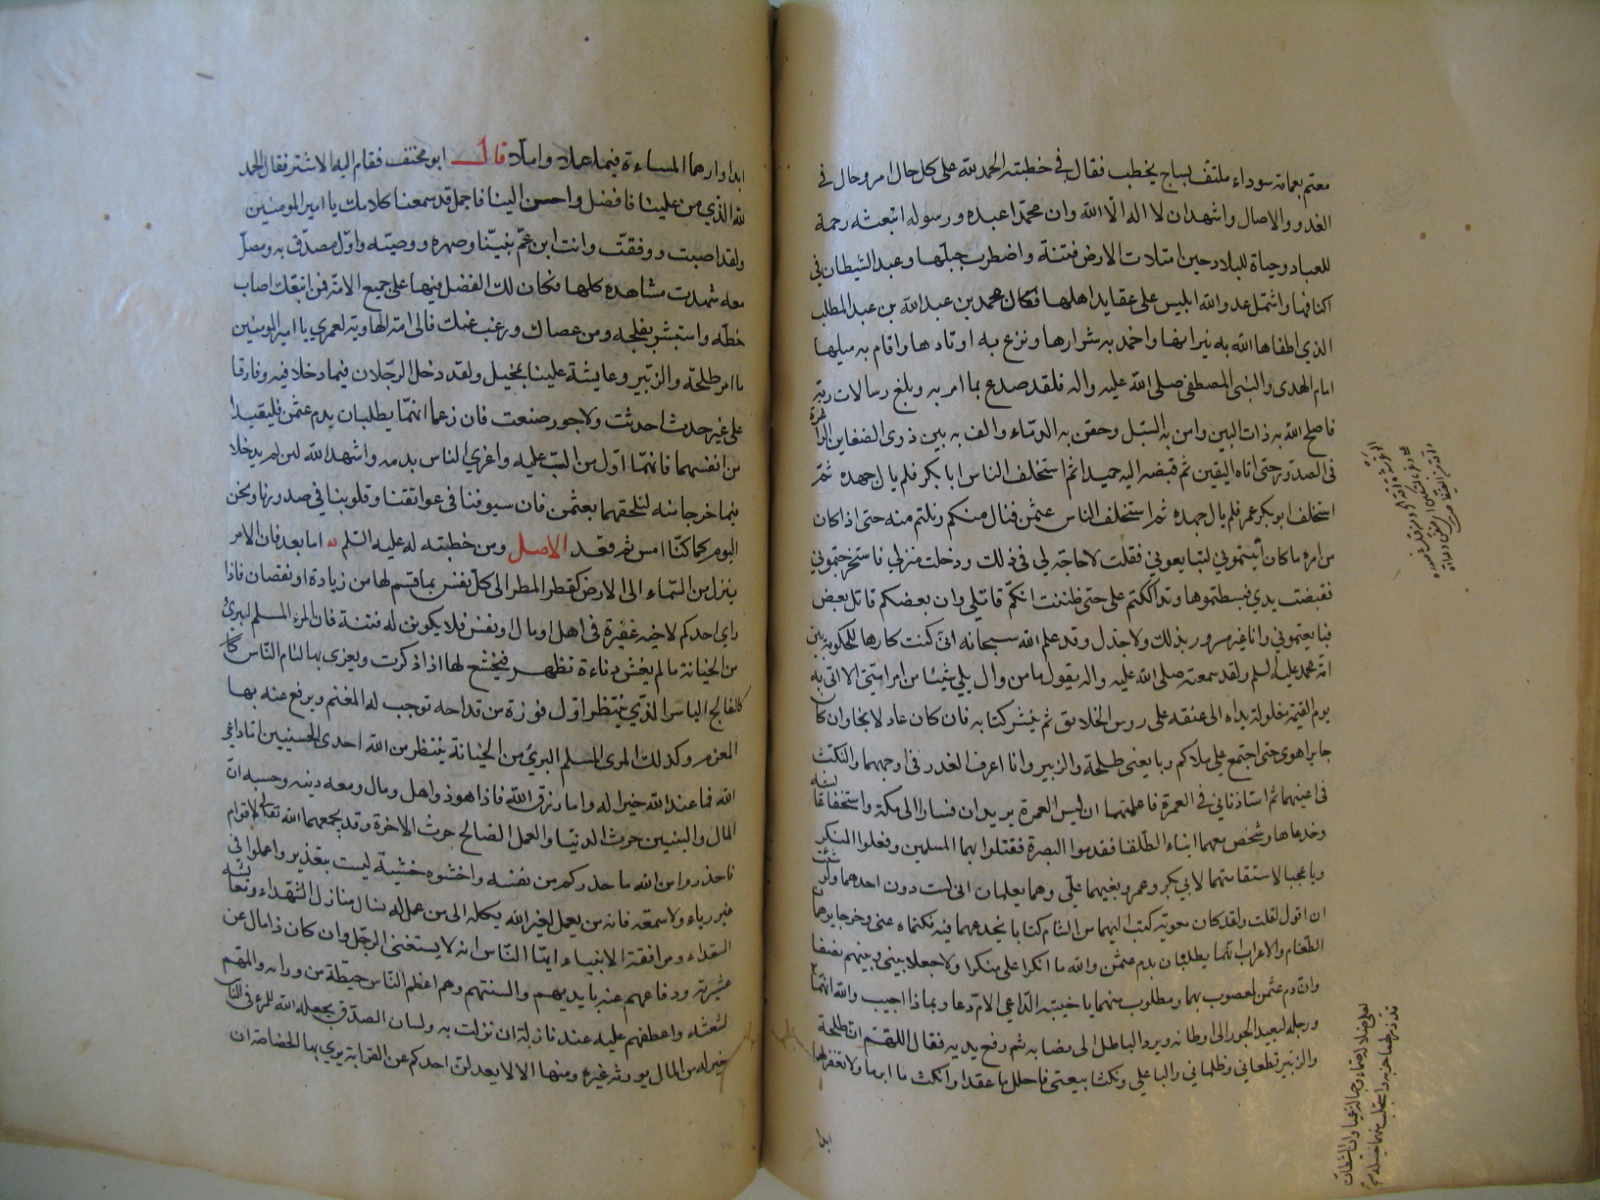 معتم بعمامة سوداء ملتف بساج يخطب فقال في خطبته الحمد لله على كل حال امر وحال في
الغدو والاصال واشهد ان لا اله الا الله وان محمدا عبده ورسوله ابتعثه رحمة
للعباد وحياة للبلاد حين امتلات الارض فتنة واضطرب حبلها وعبد الشيطان في
اكنافها واشتمل عدو الله ابليس على عقايد اهلها فكان محمد بن عبد الله بن عبد المطلب
الذي اطفا الله به نيرانها واخمد به شرارها ونزع به اوتادها واقام به ميلها
امام الهدى والنبى المصطفى صلى الله عليه واله فلقد صدع بما امر به وبلغ رسالات ربه
فاصلح الله به ذات البين وامن به السبل وحقن به الدماء والف به بين ذوى الضغاين الواغرة
فى الصدور حتى اتاه اليقين ثم قبضه اليه حميدا ثم استخلف الناس ابا بكر فلم يال جهده ثم
استخلف ابو بكر عمر فلم يال جهده ثم استخلف الناس عثمن فنال منكم ونلتم منه حتى اذا كان
من امره ما كان أتيتموني لتبايعوني فقلت لا حاجة لي في ذلك ودخلت منزلي فاستخرجتموني
فقبضت يدي فبسطتموها وتداككتم على حتى ظننت انكم قاتلي وان بعضكم قاتل بعض
فبايعتموني وانا غير مسرور بذلك ولا جذل وقد علم الله سبحانه انى كنت كارها للحكومة بين
امة محمد عليه السلم ولقد سمعته صلى الله عليه واله يقول ما من وال يلي شيئا من امر امتي الا اتى به
يوم القيمة مغلولة يداه الى عنقه على روس الخلايق ثم ينشر كتابه فان كان عادلا نجا وان كان
جايرا هوى حتى اجتمع على ملاكم وبايعنى طلحة والزبير وانا اعرف الغدر فى اوجههما والنكث
فى اعينهما ثم استاذناني في العمرة فاعلمتهما ان ليس العمرة يريدان فسارا الى مكة واستخفا عايشة
وخدعاها وشخص معهما ابناء الطلقا فقدموا البصرة فقتلوا بها المسلمين وفعلوا المنكر
ويا عجبا لاستقامتهما لابي بكر وعمر وبغيهما علي وهما يعلمان انى لست دون احدهما ولو شئت
ان اقول لقلت ولقد كان معوية كتب اليهما من الشام كتابا يخدعهما فيه فكتماه عنى وخرجا يوهمان
الطغام والاعراب انهما يطلبان بدم عثمن والله ما انكرا على منكرا ولا جعلا بينى وبينهم نصفا
وان دم عثمن لمعصوب بهما ومطلوب منهما يا خيبة الداعي الام دعا وبماذا اجيب والله انهما
ورجله لبعيد الجور الى اوطانه ويرد الباطل الى نصابه ثم رفع يديه فقال اللهم ان طلحة
والزبير قطعاني وظلماني والبا على ونكثا بيعتى فاحلل ما عقدا وانكث ما ابرما ولا تغفر لهما
ابدا
ابدا وارهما المساءة فيما عملا واملا قال ابو مخنف فقام اليه الاشتر فقال الحمد
لله الذي من علينا فافضل واحسن الينا فاجمل قد سمعنا كلامك يا امير المومنين
ولقد اصبت ووفقت وانت ابن عم نبينا وصهره ووصيه واول مصدق به ومصل
معه شهدت مشاهده كلها فكان لك الفضل فيها على جميع الامة فمن اتبعك اصاب
حظه واستبشر بفلجه ومن عصاك ورغب عنك فالى امه الهاوية لعمري يا امير المومنين
ما امر طلحة والزبير وعايشة علينا بمخيل ولقد دخل الرجلان فيما دخلا فيه وفارقا
على غير حدث احدثت ولا جور صنعت فان زعما انهما يطلبان بدم عثمن فليقيدا
من انفسهما فانهما اول من الب عليه واغرى الناس بدمه واشهد الله لئن لم يدخلا
فيما خرجا منه لنلحقهما بعثمن فان سيوفنا فى عواتقنا وقلوبنا في صدورنا ونحن
اليوم كما كنا امس ثم قعد الاصل ومن خطبته له عليه السلم اما بعد فان الامر
ينزل من السماء الى الارض كقطر المطر الى كل نفس بما قسم لها من زيادة او نقصان فاذا
راى احدكم لاخيه غفيرة فى اهل او مال او نفس فلا يكونن له فتنة فان المرء المسلم البرئ
من الخيانة ما لم يغش دناءة تظهر فيخشع لها اذا ذكرت ويغرى بها لئام الناس كان
كالفالج الياسر الذي ينتظر اول فوزة من قداحه توجب له المغنم ويرفع عنه بها
المغرم وكذلك المرء المسلم البرئ من الخيانة ينتظر من الله احدى الحسنيين اما داعي
الله فما عند الله خيرا له واما رزق الله فاذا هو ذو اهل ومال ومعه دينه وحسبه ان
المال والبنين حرث الدنيا والعمل الصالح حرث الاخرة وقد يجمعهما الله تعالى لاقوام
فاحذروا من الله ما حذركم من نفسه واخشوه خشية ليست بتعذير واعملوا في
غير رياء ولا سمعة فانه من يعمل لغير الله يكله الى من عمل له نسال منازل الشهداء ومعايشة
السعداء ومرافقة الانبياء ايها الناس انه لا يستغنى الرجل وان كان ذا مال عن
عشيرته ودفاعهم عنه بايديهم والسنتهم وهم اعظم الناس حيطة من ورائه والمهم
لشعثه واعطفهم عليه عند نازلة ان نزلت به ولسان الصدق يجعله الله للمرء في الناس
خير له من المال يورثه غيره ومنها الا لا يعدلن احدكم عن القرابة يرى بها الخصاصة ان